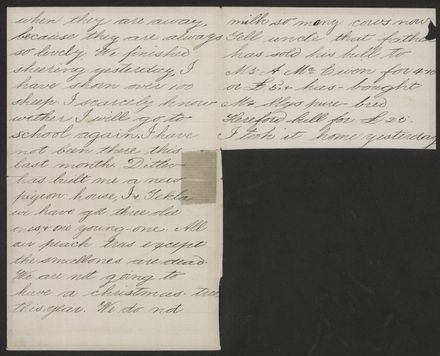 when they are away,
because they are always
so lovely. We finished
shearing yesterday, I
have shorn over 100
sheep I scarcely know
wether I will go to
school again. I have
not been there this
last month.
has built me a new
pigeon house, I & Tekla
we have got three old
ones, & one young one. All
our peach trees except
the small ones are dead.
We are not going to
have a christmas tree
this year. We do not
milk so many cows now
Tell uncle that father
has sold his bull to
Mr A Mc Ewon for
or £5, & has bought
Mr pure bred
Hereford bull for £20.
I took it home yesterday